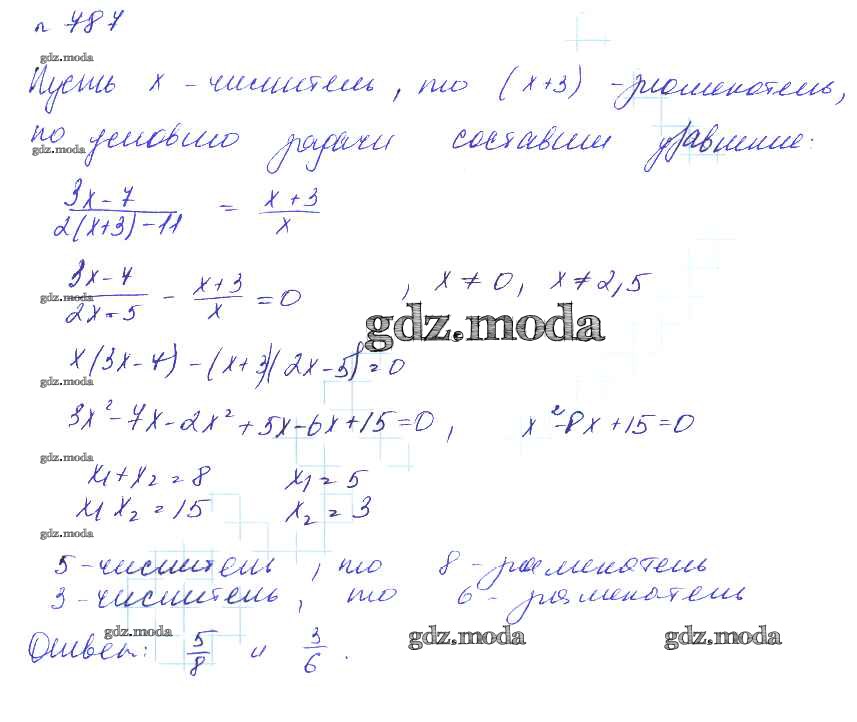 n 787
gdz.moda
Пусть x - числитель, то (x+3) - знаменатель,
по условию задачи составим уравнение:
gdz.moda
(3x-7)/(2(x+3)-11) = (x+3)/x
(3x-7)/(2x-5) - (x+3)/x = 0 , x ≠ 0, x ≠ 2,5
gdz.moda
gdz.moda
x(3x-7) - (x+3)(2x-5) = 0
gdz.moda
3x²-7x-2x²+5x-6x+15=0, x²-8x+15=0
gdz.moda
x₁+x₂=8 x₁=5
x₁x₂=15 x₂=3
gdz.moda
5-числитель, то 8-знаменатель
3-числитель, то 6-знаменатель
gdz.moda gdz.moda gdz.moda
Ответ: 5/8 и 3/6.